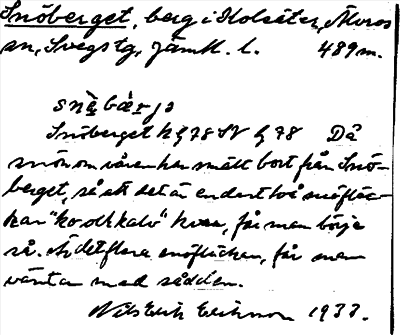 Snöberget, berg i Kolsäter, Älvros
sn, Svegs tg, Jämtl. l. 489 m.
snö̀bæ̀rjə
Snöberget h 578 SV 578 Då
snön om våren har smält bort från Snö-
berget, så att det är endast två snöfläc-
kar "ko och kalv" kvar, får man börja
så. Är det flera snöfläckar, får man
vänta med sådden.
Nils Erik Eriksson 1933.